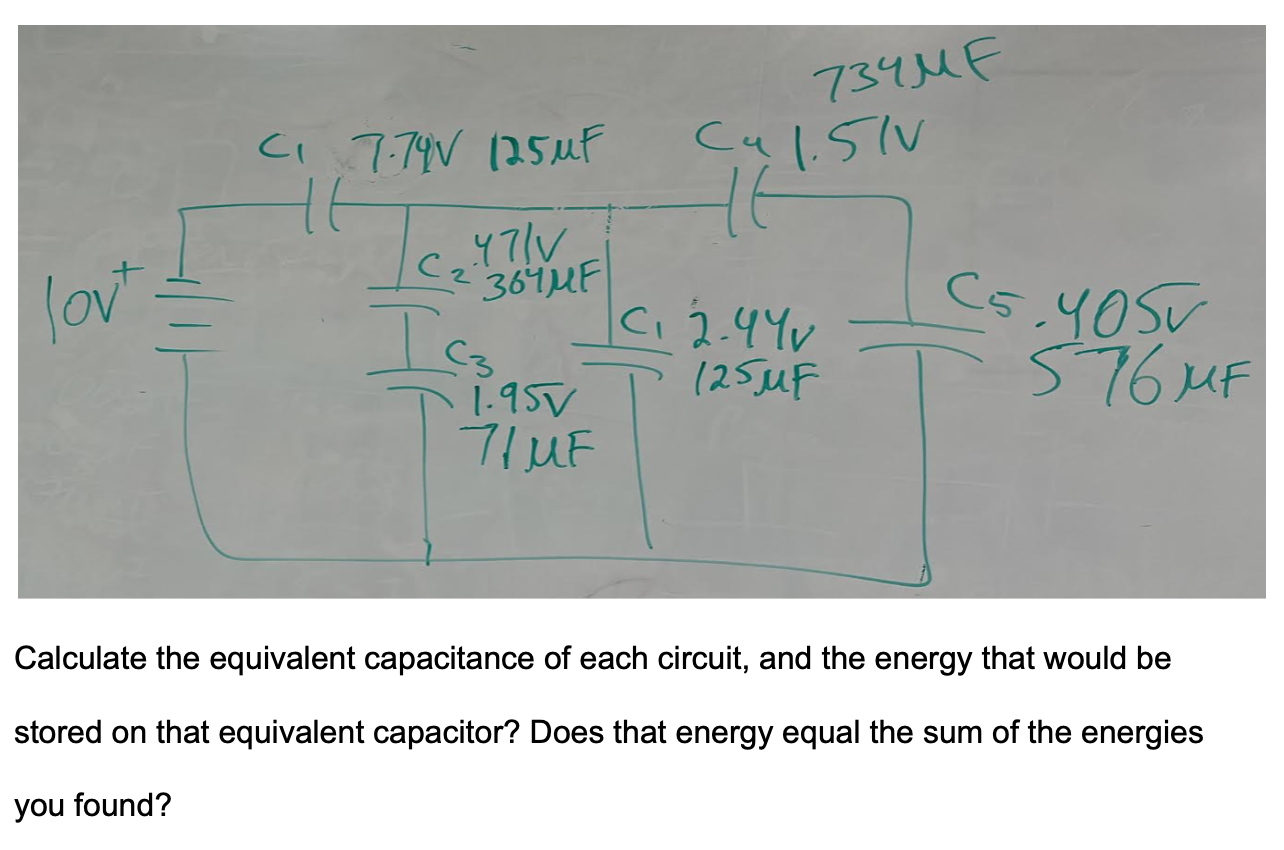 734μF
C1 7.74V 125μF
C4 1.51V
10V +
C2 .471V
364μF
C3
1.95V
71μF
C1 2.44V
125μF
C5 .405V
576μF
Calculate the equivalent capacitance of each circuit, and the energy that would be
stored on that equivalent capacitor? Does that energy equal the sum of the energies
you found?